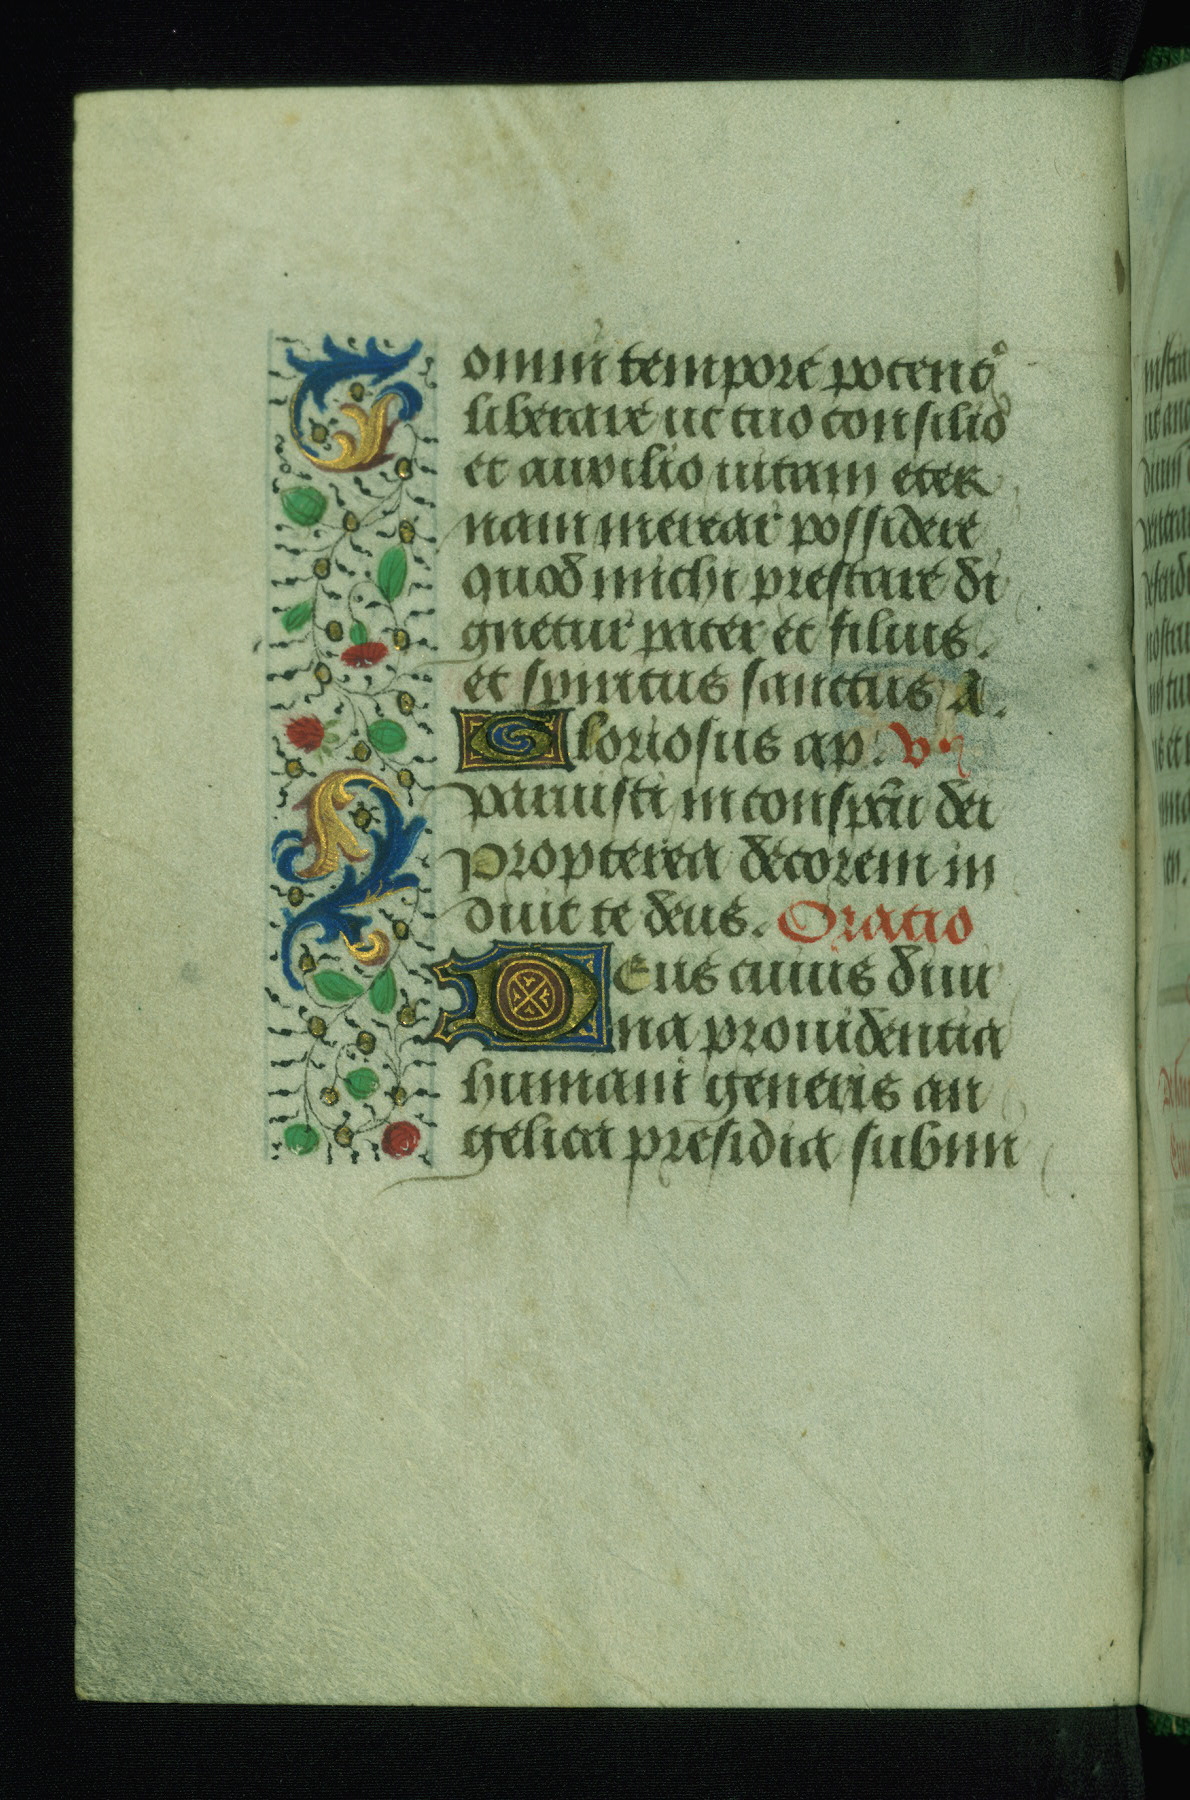 omni tempore potens
liberare ut tuo consilio
et auxilio uitam eter
nam merear possidere
quod michi prestare di
gnetur pater et filius.
et spiritus sanctus A.
Gloriosus ap. v.
paruisti in conspectu dei
Propterea decorem in
duit te deus. Oratio
Deus cuius diui
na prouidentia
humani generis an
gelica presidia submi